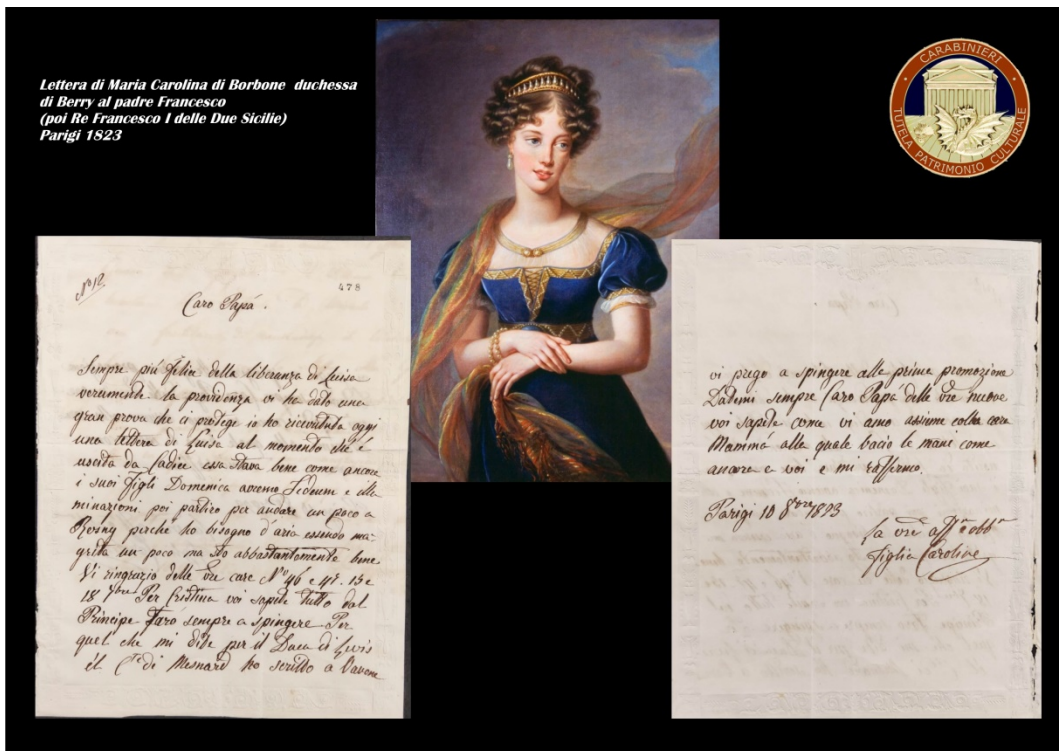 Lettera di Maria Carolina di Borbone duchessa
di Berry al padre Francesco
(poi Re Francesco I delle Due Sicilie)
Parigi 1823
CARABINIERI
TUTELA PATRIMONIO CULTURALE
Nº 12
478
Caro Papá.
Sempre piú felice della liberanza di Luisa
veramente la providenza vi ha dato una
gran prova che ci protege io ho ricevuta oggi
una lettera di Luisa al momento che é
uscita da Cadice essa stava bene come ancora
i suoi figli Domenica avremo Tedeum e illu
minazioni poi partiro per andare un poco a
Rosny perché ho bisogno d'aria essendo ma-
grita un poco ma sto abbastantemente bene
Vi ringrazio delle vre care Nº 46 e 47. 15 e
18 7bre Per Cristina voi sapete tutto dal
Principe faró sempre a spingere Per
quel che mi dite per il Duca di
il Cte di Mesnard ho scritto a
vi prego a spingere alle prime promozione
Datemi sempre Caro Papá delle vre nuove
voi sapete come vi amo assieme colla cara
Mammá alla quale bacio le mani come
ancora a voi e mi raffermo.
Parigi 10 8bre 1823
La vra affa e obba
figlia Caroline